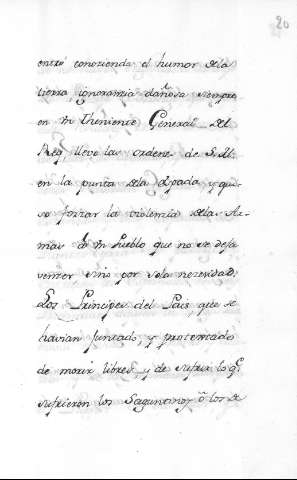 20
entró conociendo el humor de la
tierra, ignorancia dañosa siempre
en un Theniente General del
Rey, llevó las ordenes de S. M.
en la punta de la Espada, y qui-
so forzar la violencia de las Ar-
mas à un Pueblo que no se deja
vencer, sino por sola necesidad.
Los Principes del Pais, que se
havian juntado, y protextado
de morir libres, y de sufrir lo q.e
sufrieron los Saguntinos, ò los de